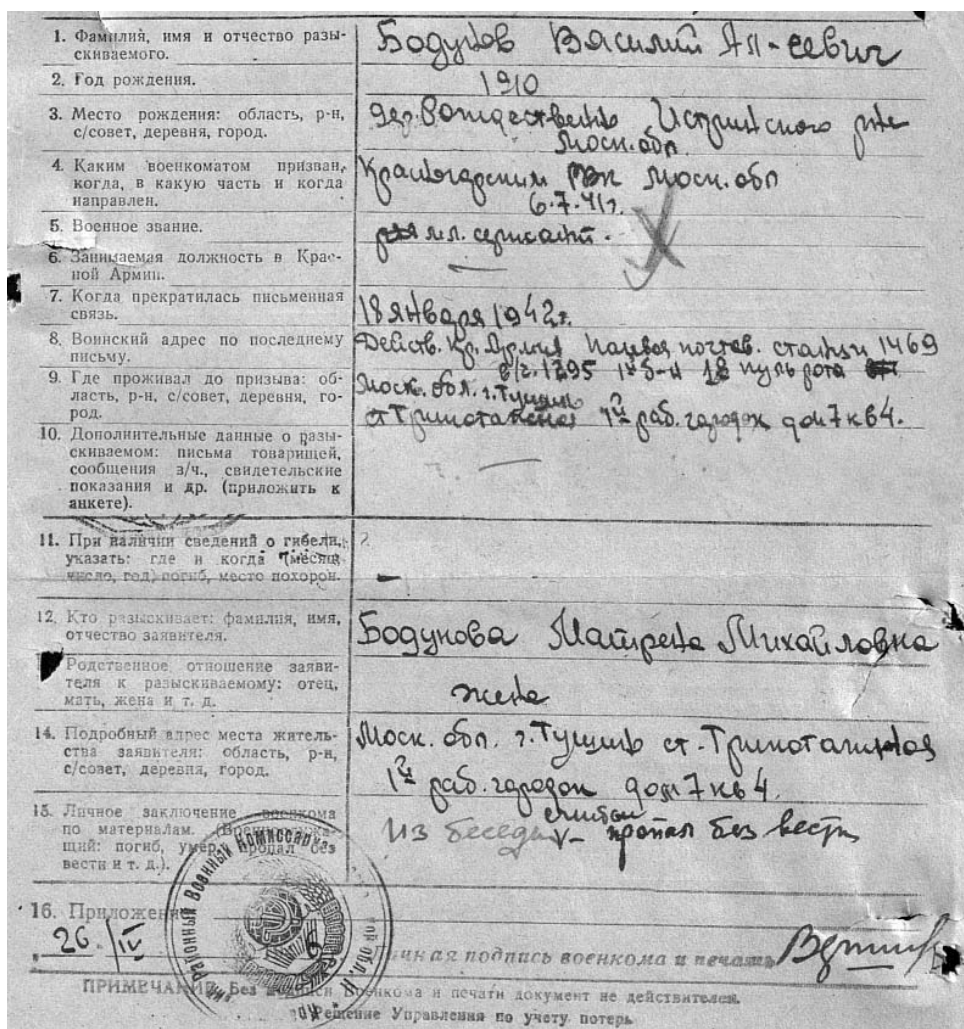 1. Фамилия, имя и отчество разы-
скиваемого.
Бодунов Василий Ал-еевич
2. Год рождения.
1910
3. Место рождения: область, р-н,
с/совет, деревня, город.
дер. Рождествено Истринского р-на
Моск. обл.
4. Каким военкоматом призван,
когда, в какую часть и когда
направлен.
Красногорским РВК Моск. обл
6.7.41г.
5. Военное звание.
мл. сержант.
6. Занимаемая должность в Крас-
ной Армии.
—
7. Когда прекратилась письменная
связь.
18 января 1942г.
8. Воинский адрес по последнему
письму.
Действ. Кр. Армия Полевая почтов. станция 1469
п/я 1295 1й б-н 1я пуль рота
9. Где проживал до призыва: об-
ласть, р-н, с/совет, деревня, го-
род.
Моск. обл. г. Тушино
ст Трикотажная 1й раб. городок дом 7 кв 4.
10. Дополнительные данные о разы-
скиваемом: письма товарищей,
сообщения з/ч., свидетельские
показания и др. (приложить к
анкете).
—
11. При наличии сведений о гибели,
указать: где и когда (месяц
число, год) погиб, место похорон.
?
—
12. Кто разыскивает: фамилия, имя,
отчество заявителя.
Бодунова Матрена Михайловна
Родственное отношение заяви-
теля к разыскиваемому: отец,
мать, жена и т. д.
жена
14. Подробный адрес места житель-
ства заявителя: область, р-н,
с/совет, деревня, город.
Моск. обл. г. Тушино ст. Трикотажная
1й раб. городок дом 7 кв 4.
15. Личное заключение военкома
по материалам.
щий: погиб, умер, пропал без
вести и т. д.).
считаю
Из беседы - пропал без вести
16. Приложение
26/IV
Районный Военный Комиссариат
Личная подпись военкома и печать
ПРИМЕЧАНИЕ: Без подписи Военкома и печати документ не действителен.
Решение Управления по учету потерь